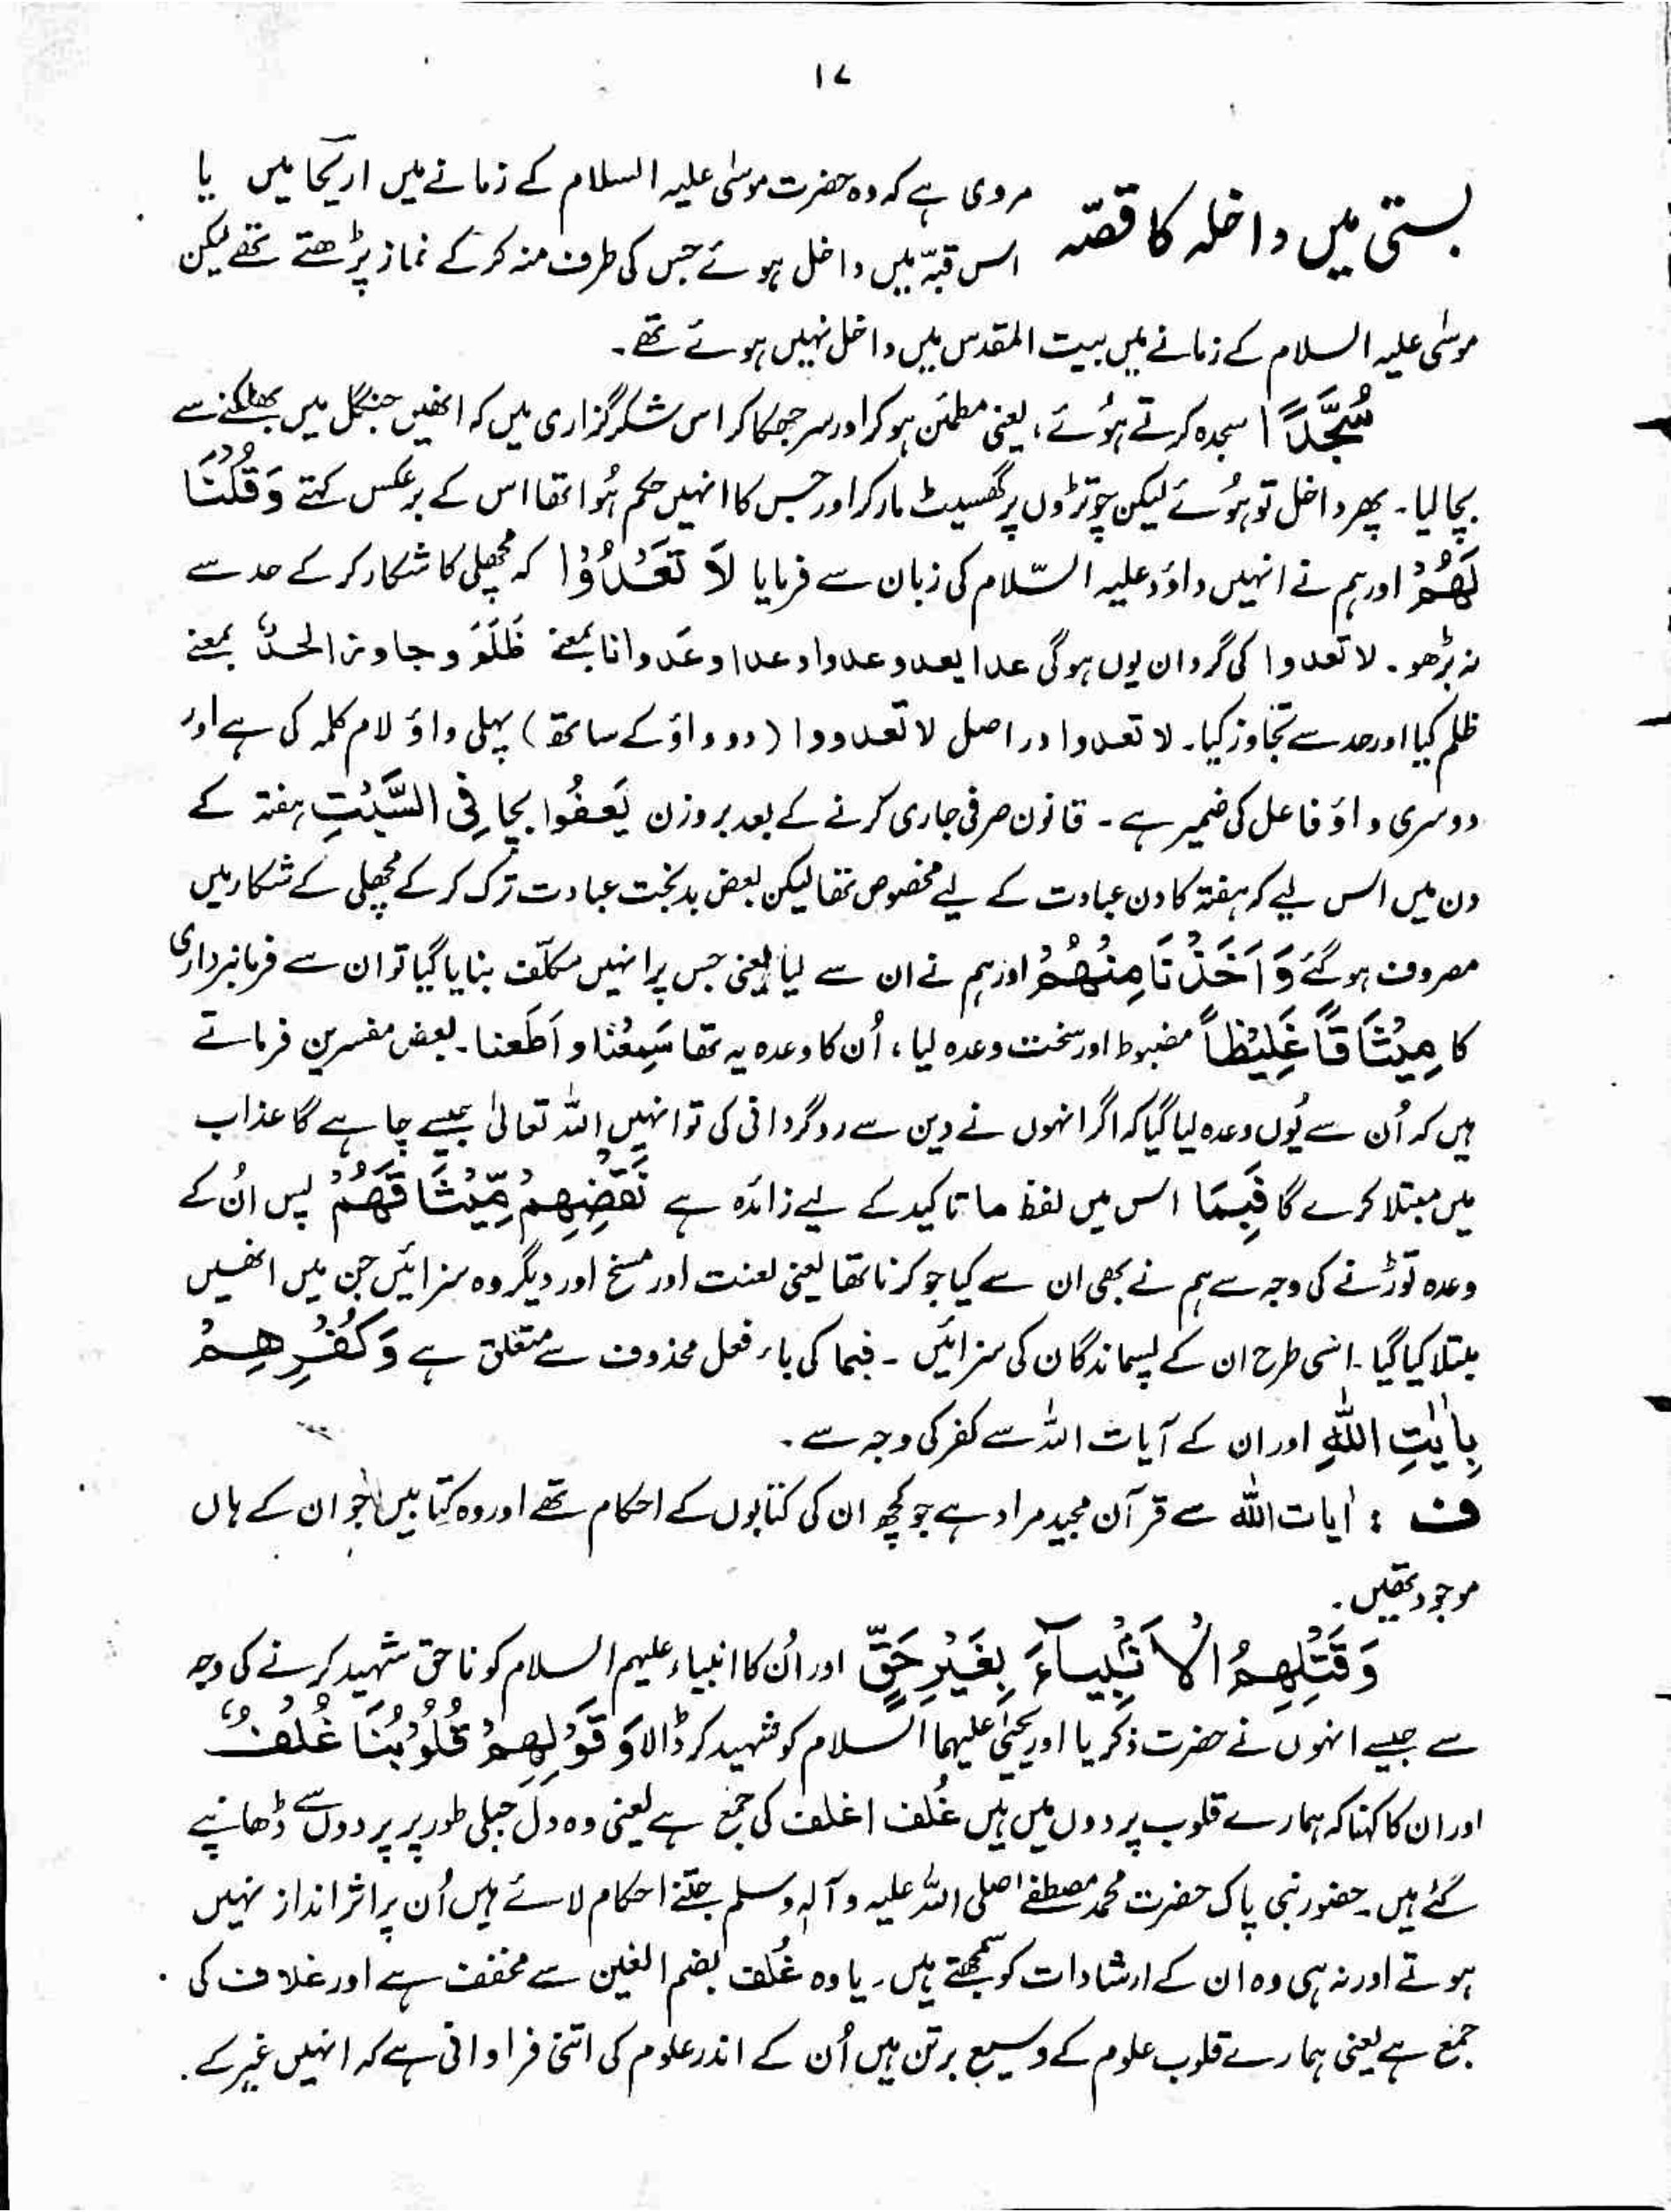 ۱۷
بستی میں داخلہ کا قصّہ
مروی ہے کہ وہ حضرت موسٰی علیہ السلام کے زمانے میں اریحا میں یا
اس قبّہ میں داخل ہوئے جس کی طرف منہ کر کے نماز پڑھتے تھے لیکن
موسٰی علیہ السلام کے زمانے میں بیت المقدس میں داخل نہیں ہوئے تھے۔
سُجَّدًا سجدہ کرتے ہُوئے، یعنی مطمئن ہو کر اور سر جھکا کر اس شکر گزاری میں کہ انھیں جنگل میں بھٹکنے سے
بچا لیا۔ پھر داخل تو ہُوئے لیکن چوتڑوں پر گھسیٹ مار کر اور جس کا انہیں حکم ہُوا تھا اس کے برعکس کہتے وَقُلْنَا
لَهُمْ اور ہم نے انہیں داؤد علیہ السّلام کی زبان سے فرمایا لَا تَعْدُوْا کہ مچھلی کا شکار کر کے حد سے
نہ بڑھو۔ لا تعدوا کی گردان یوں ہوگی عدا یعدو عدوا و عداا و عَدوانا بمعنے ظَلَمَ و جاوز الحدّ بمعنے
ظلم کیا اور حد سے تجاوز کیا۔ لا تعدوا در اصل لا تعدووا (دو واؤ کے ساتھ) پہلی واؤ لام کلمہ کی ہے اور
دوسری واؤ فاعل کی ضمیر ہے۔ قانون صرفی جاری کرنے کے بعد بروزن یَعفُوا بچا فِی السَّبْتِ ہفتہ کے
دن میں اس لیے کہ ہفتہ کا دن عبادت کے لیے مخصوص تھا لیکن بعض بدبخت عبادت ترک کر کے مچھلی کے شکار میں
مصروف ہو گئے وَاَخَذْنَا مِنْهُمْ اور ہم نے ان سے لیا یعنی جس پر انہیں مکلّف بنایا گیا تو ان سے فرمانبرداری
کا مِيْثَاقًا غَلِيْظًا مضبوط اور سخت وعدہ لیا، اُن کا وعدہ یہ تھا سَمِعْنَا و اَطَعنا۔ بعض مفسرین فرماتے
ہیں کہ اُن سے یُوں وعدہ لیا گیا کہ اگر انہوں نے دین سے روگردانی کی تو انہیں اللہ تعالیٰ جیسے چاہے گا عذاب
میں مبتلا کرے گا فَبِمَا اس میں لفظ ما تاکید کے لیے زائدہ ہے نَقْضِهِمْ مِّيْثَاقَهُمْ پس اُن کے
وعدہ توڑنے کی وجہ سے ہم نے بھی ان سے کیا جو کرنا تھا یعنی لعنت اور مسخ اور دیگر وہ سزائیں جن میں انھیں
مبتلا کیا گیا۔ اسی طرح ان کے پسماندگان کی سزائیں۔ فبما کی باء فعل محذوف سے متعلق ہے وَكُفْرِهِمْ
بِاٰيٰتِ اللّٰهِ اور ان کے آیات اللہ سے کفر کی وجہ سے۔
ف : اٰیات اللہ سے قرآن مجید مراد ہے جو کچھ ان کی کتابوں کے احکام تھے اور وہ کتابیں جو ان کے ہاں
موجود تھیں۔
وَقَتْلِهِمُ الْاَنْبِيَآءَ بِغَيْرِ حَقٍّ اور اُن کا انبیاء علیہم السلام کو ناحق شہید کرنے کی وجہ
سے جیسے انہوں نے حضرت ذکریا اور یحیٰی علیہما السلام کو شہید کر ڈالا وَقَوْلِهِمْ قُلُوْبُنَا غُلْفٌ
اور ان کا کہنا کہ ہمارے قلوب پردوں میں ہیں غُلف اغلف کی جمع ہے یعنی وہ دل جبلی طور پر پردوں سے ڈھانپے
گئے ہیں۔ حضور نبی پاک حضرت محمد مصطفےٰ صلی اللہ علیہ وآلہ وسلم جتنے احکام لائے ہیں اُن پر اثر انداز نہیں
ہوتے اور نہ ہی وہ ان کے ارشادات کو سمجھتے ہیں۔ یا وہ غُلف بضم الغین سے مخفف ہے اور غلاف کی
جمع ہے یعنی ہمارے قلوب علوم کے وسیع برتن ہیں اُن کے اندر علوم کی اتنی فراوانی ہے کہ انہیں غیر کے